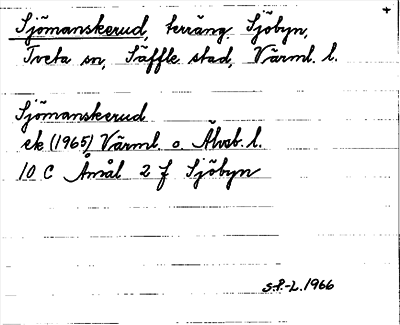 Sjömanskerud, terräng. Sjöbyn,
Tveta sn, Säffle stad, Värml. l.
Sjömanskerud
ek (1965) Värml. o. Älvsb. l.
10 C Åmål 2 f Sjöbyn
S.P.-L. 1966